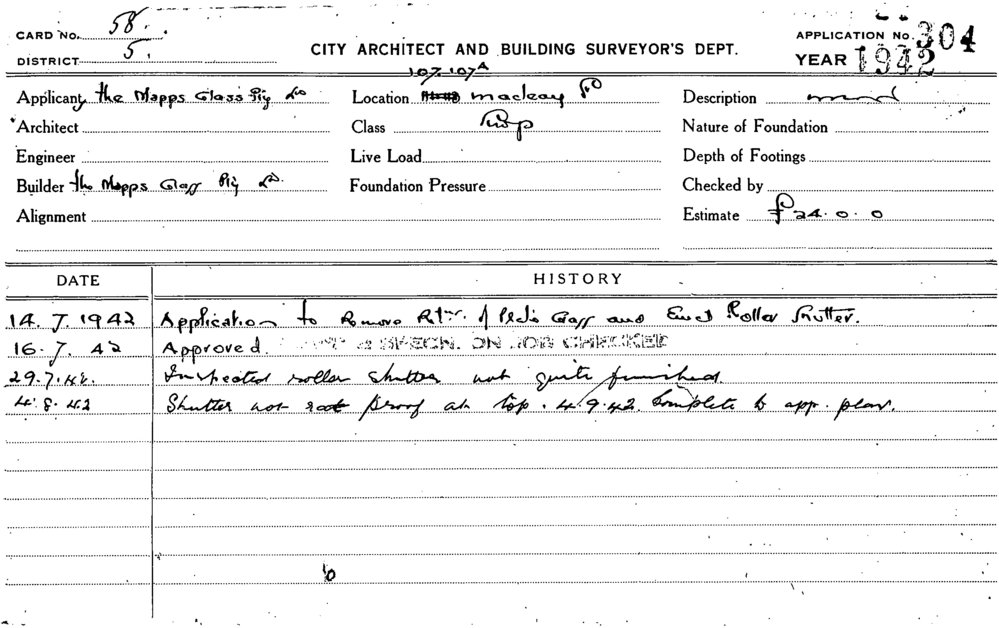 CARD No. 58.
DISTRICT 5.
CITY ARCHITECT AND BUILDING SURVEYOR'S DEPT.
APPLICATION No. 304
YEAR 1942
107. 107A
Applicant The Mapps Glass Pty Ld
Location Mackay
Description
Architect
Class
Nature of Foundation
Engineer
Live Load
Depth of Footings
Builder The Mapps Glass Pty Ld.
Foundation Pressure
Checked by
Alignment
Estimate £24.0.0
DATE HISTORY
14.7.1942 Application to Remove of Glass and Erect Roller Shutter.
16.7.42 Approved. & SPECN. ON JOB CHECKED
29.7.42. Inspected roller shutter not quite finished
4.8.42 Shutter not proof at top. 4.9.42. Complete to app. plan.